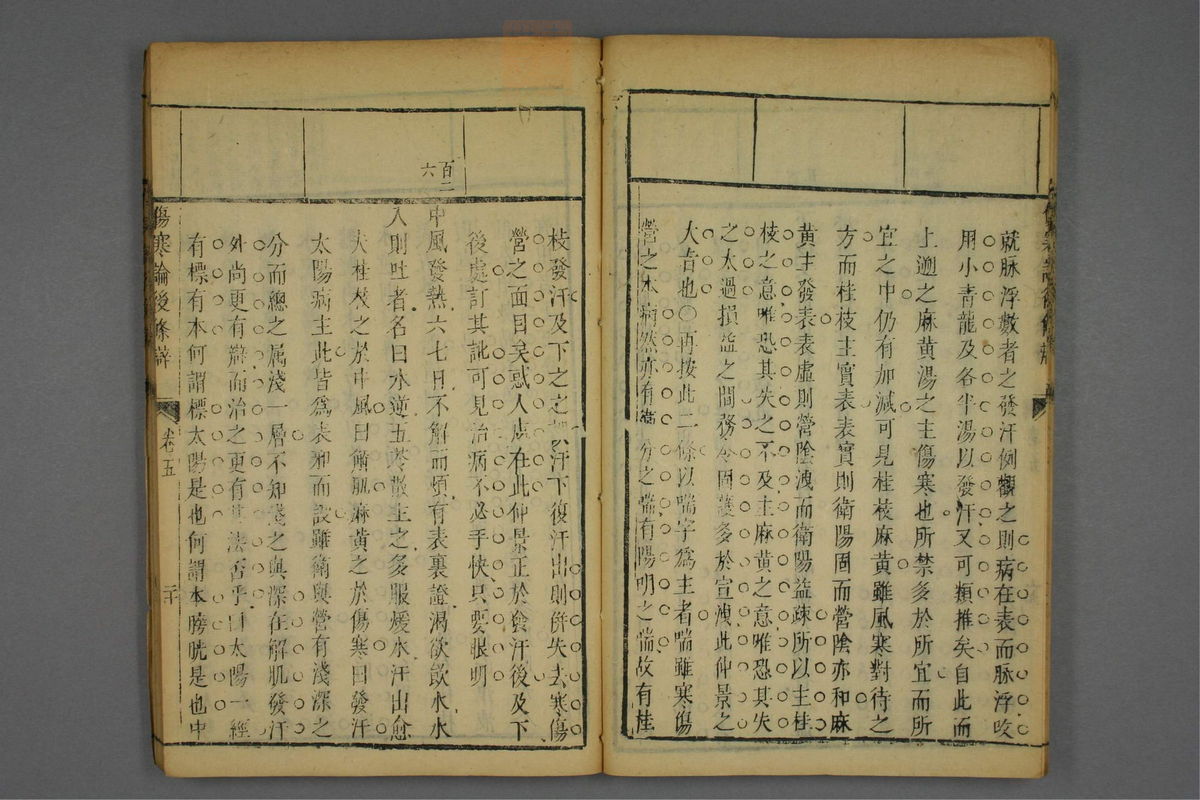 就脉浮數者之發汗例觀之則病在表而脉浮改
用小青龍及各半湯以發汗又可類推矣自此而
上遡之麻黄湯之主傷寒也所禁多於所宜而所
宜之中仍有加減可見桂枝麻黄雖風寒對待之
方而桂枝主實表表實則衛陽固而營陰亦和麻
黄主發表表虛則營陰洩而衛陽益疎所以主桂
枝之意唯恐其失之不及主麻黄之意唯恐其失
之太過損益之間務令固護多於宣洩此仲景之
大旨也〇再按此二條以喘字爲主者喘雖寒傷
營之本病然亦有 分之喘有陽明之喘故有桂
枝發汗及下之之 汗下復汗出則併失去寒傷
營之面目矣惑人處在此仲景正於發汗後及下
後處訂其訛可見治病不必手快只要眼明
百二
六
中風發熱六七日不解而煩有表裏證渴欲飲水水
入則吐者名曰水逆五苓散主之多服煖水汗出愈
夫桂枝之於中風曰解肌麻黄之於傷寒曰發汗
太陽病主此皆爲表邪而設雖衛與營有淺深之
分而總之属淺一層不知淺之與深在解肌發汗
外尚更有辯而治之更有 法否乎曰太陽一經
有標有本何謂標太陽是也何謂本膀胱是也中
傷寒論後條辯
卷五
二十